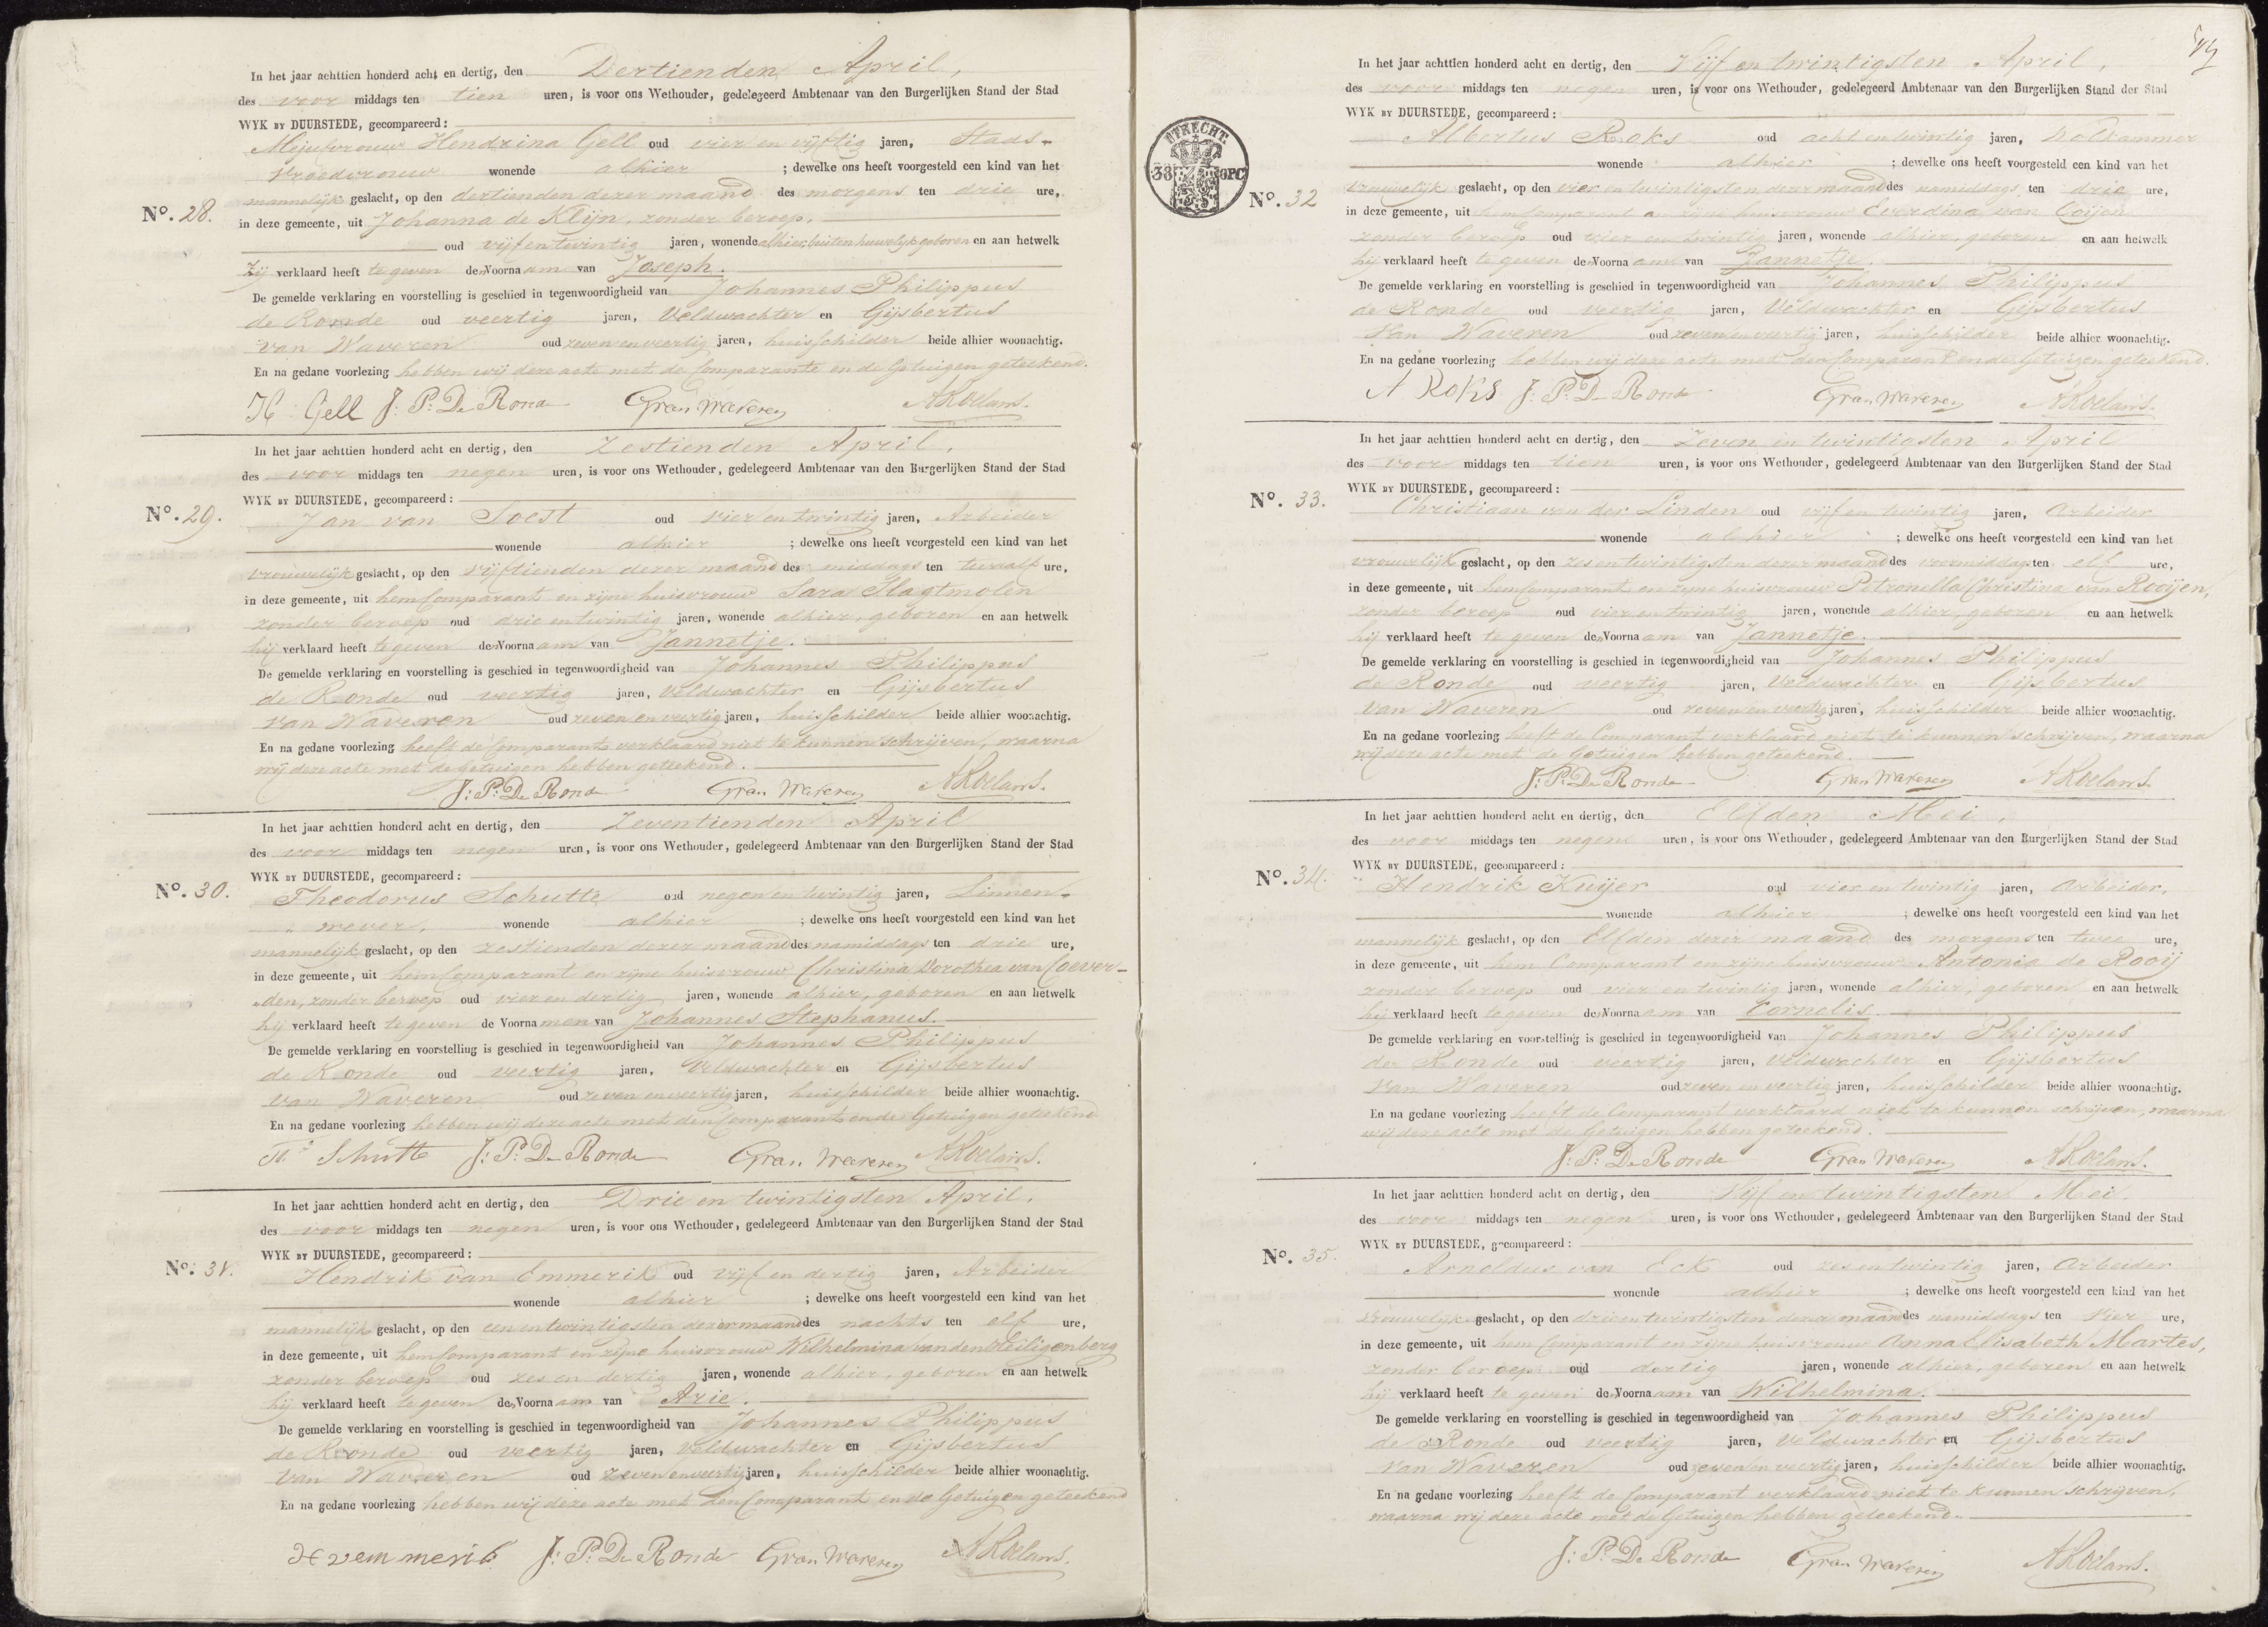 In het jaar achttien honderd acht en dertig, den Dertienden April,
des voor middags ten tien uren, is voor ons Wethouder, gedelegeerd Ambtenaar van den Burgerlijken Stand der Stad
WYK BY DUURSTEDE, gecompareerd:
Mejufvrouw Hendrina Gell oud vier en vijftig jaren, Stads-
vroedvrouw wonende alhier ; dewelke ons heeft voorgesteld een kind van het
mannelijk geslacht, op den dertienden dezer maand des morgens ten drie ure,
No. 28. in deze gemeente, uit Johanna de Klijn, zonder beroep,
oud vijfentwintig jaren, wonende alhier, buiten huwelijk geboren en aan hetwelk
Zij verklaard heeft te geven den Voornaam van Joseph.
De gemelde verklaring en voorstelling is geschied in tegenwoordigheid van Johannes Philippus
de Ronde oud veertig jaren, Veldwachter en Gijsbertus
van Waveren oud zevenenveertig jaren, huisschilder beide alhier woonachtig.
En na gedane voorlezing hebben wij deze acte met de Comparante en de Getuigen geteekend.
H Gell J: P: De Ronde G van Waveren A Roelans.
In het jaar achttien honderd acht en dertig, den Zestienden April,
des voor middags ten negen uren, is voor ons Wethouder, gedelegeerd Ambtenaar van den Burgerlijken Stand der Stad
WYK BY DUURSTEDE, gecompareerd:
No. 29. Jan van Soest oud vier en twintig jaren, Arbeider
wonende alhier ; dewelke ons heeft voorgesteld een kind van het
vrouwelijk geslacht, op den vijftienden dezer maand des middags ten twaalf ure,
in deze gemeente, uit hem Comparant en zijne huisvrouw Sara Slagtmolen
zonder beroep oud drie en twintig jaren, wonende alhier, geboren en aan hetwelk
hij verklaard heeft te geven den Voornaam van Jannetje.
De gemelde verklaring en voorstelling is geschied in tegenwoordigheid van Johannes Philippus
de Ronde oud veertig jaren, Veldwachter en Gijsbertus
van Waveren oud zeven en veertig jaren, huisschilder beide alhier woonachtig.
En na gedane voorlezing heeft de Comparant verklaard niet te kunnen schrijven, waarna
wij deze acte met de getuigen hebben geteekend.
J: P: De Ronde G van Waveren A Roelans.
In het jaar achttien honderd acht en dertig, den Zeventienden April
des voor middags ten negen uren, is voor ons Wethouder, gedelegeerd Ambtenaar van den Burgerlijken Stand der Stad
WYK BY DUURSTEDE, gecompareerd:
No. 30. Theodorus Schutte oud negen en twintig jaren, Linnen-
wever, wonende alhier ; dewelke ons heeft voorgesteld een kind van het
mannelijk geslacht, op den zestienden dezer maand des namiddags ten drie ure,
in deze gemeente, uit hem Comparant en zijne huisvrouw Christina Dorothea van Coever-
den, zonder beroep oud vier en dertig jaren, wonende alhier, geboren en aan hetwelk
hij verklaard heeft te geven de Voornamen van Johannes Stephanus.
De gemelde verklaring en voorstelling is geschied in tegenwoordigheid van Johannes Philippus
de Ronde oud veertig jaren, Veldwachter en Gijsbertus
van Waveren oud zeven en veertig jaren, huisschilder beide alhier woonachtig.
En na gedane voorlezing hebben wij deze acte met den Comparant en de Getuigen geteekend
Th. Schutte J: P: De Ronde G van Waveren A Roelans.
In het jaar achttien honderd acht en dertig, den Drie en twintigsten April.
des voor middags ten negen uren, is voor ons Wethouder, gedelegeerd Ambtenaar van den Burgerlijken Stand der Stad
WYK BY DUURSTEDE, gecompareerd:
No. 31. Hendrik van Emmerik oud vijf en dertig jaren, Arbeider
wonende alhier ; dewelke ons heeft voorgesteld een kind van het
mannelijk geslacht, op den een en twintigsten dezer maand des nachts ten elf ure,
in deze gemeente, uit hem Comparant en zijne huisvrouw Wilhelmina van den Heiligenberg
zonder beroep oud zes en dertig jaren, wonende alhier, geboren en aan hetwelk
hij verklaard heeft te geven den Voornaam van Arie.
De gemelde verklaring en voorstelling is geschied in tegenwoordigheid van Johannes Philippus
de Ronde oud veertig jaren, Veldwachter en Gijsbertus
van Waveren oud zeven en veertig jaren, huisschilder beide alhier woonachtig.
En na gedane voorlezing hebben wij deze acte met den Comparant en de Getuigen geteekend
H vem merik J: P: De Ronde G van Waveren A Roelans.
In het jaar achttien honderd acht en dertig, den Vijf en twintigsten April,
des voor middags ten negen uren, is voor ons Wethouder, gedelegeerd Ambtenaar van den Burgerlijken Stand der Stad
WYK BY DUURSTEDE, gecompareerd:
UTRECHT.
38 OPC
Albertus Roks oud acht en twintig jaren, wolkammer
wonende alhier ; dewelke ons heeft voorgesteld een kind van het
No. 32 vrouwelijk geslacht, op den vier en twintigsten dezer maand des namiddags ten drie ure,
in deze gemeente, uit hem Comparant en zijne huisvrouw Everdina van Coijen
zonder beroep oud vier en twintig jaren, wonende alhier, geboren en aan hetwelk
hij verklaard heeft te geven den Voornaam van Jannetje.
De gemelde verklaring en voorstelling is geschied in tegenwoordigheid van Johannes Philippus
de Ronde oud veertig jaren, Veldwachter en Gijsbertus
van Waveren oud zeven en veertig jaren, huisschilder beide alhier woonachtig.
En na gedane voorlezing hebben wij deze acte met den Comparant en de Getuigen geteekend.
A Roks J: P: De Ronde G van Waveren A Roelans.
In het jaar achttien honderd acht en dertig, den Zeven en twintigsten April
des voor middags ten tien uren, is voor ons Wethouder, gedelegeerd Ambtenaar van den Burgerlijken Stand der Stad
WYK BY DUURSTEDE, gecompareerd:
No. 33. Christiaan van der Linden oud vijf en twintig jaren, Arbeider
wonende alhier ; dewelke ons heeft voorgesteld een kind van het
vrouwelijk geslacht, op den zes en twintigsten dezer maand des voormiddags ten elf ure,
in deze gemeente, uit hem Comparant en zijne huisvrouw Petronella Christina van Rooijen,
zonder beroep oud vier en twintig jaren, wonende alhier, geboren en aan hetwelk
hij verklaard heeft te geven den Voornaam van Jannetje.
De gemelde verklaring en voorstelling is geschied in tegenwoordigheid van Johannes Philippus
de Ronde oud veertig jaren, Veldwachter en Gijsbertus
van Waveren oud zeven en veertig jaren, huisschilder beide alhier woonachtig.
En na gedane voorlezing heeft de Comparant verklaard niet te kunnen schrijven, waarna
wij deze acte met de Getuigen hebben geteekend.
J: P: De Ronde G van Waveren A Roelans.
In het jaar achttien honderd acht en dertig, den Elfden Mei,
des voor middags ten negen uren, is voor ons Wethouder, gedelegeerd Ambtenaar van den Burgerlijken Stand der Stad
WYK BY DUURSTEDE, gecompareerd:
No. 34. Hendrik Kuijer oud vier en twintig jaren, Arbeider,
wonende alhier ; dewelke ons heeft voorgesteld een kind van het
mannelijk geslacht, op den Elfden dezer maand des morgens ten twee ure,
in deze gemeente, uit hem Comparant en zijne huisvrouw Antonia de Rooij
zonder beroep oud vier en twintig jaren, wonende alhier, geboren en aan hetwelk
hij verklaard heeft te geven den Voornaam van Cornelis.
De gemelde verklaring en voorstelling is geschied in tegenwoordigheid van Johannes Philippus
de Ronde oud veertig jaren, Veldwachter en Gijsbertus
van Waveren oud zeven en veertig jaren, huisschilder beide alhier woonachtig.
En na gedane voorlezing heeft de Comparant verklaard niet te kunnen schrijven, waarna
wij deze acte met de Getuigen hebben geteekend.
J: P: De Ronde G van Waveren A Roelans.
In het jaar achttien honderd acht en dertig, den Vijf en twintigsten Mei,
des voor middags ten negen uren, is voor ons Wethouder, gedelegeerd Ambtenaar van den Burgerlijken Stand der Stad
WYK BY DUURSTEDE, gecompareerd:
No. 35. Arnoldus van Eck oud zes en twintig jaren, Arbeider
wonende alhier ; dewelke ons heeft voorgesteld een kind van het
vrouwelijk geslacht, op den drie en twintigsten dezer maand des namiddags ten vier ure,
in deze gemeente, uit hem Comparant en zijne huisvrouw Anna Elisabeth Martes,
zonder beroep oud dertig jaren, wonende alhier, geboren en aan hetwelk
hij verklaard heeft te geven den Voornaam van Wilhelmina.
De gemelde verklaring en voorstelling is geschied in tegenwoordigheid van Johannes Philippus
de Ronde oud veertig jaren, Veldwachter en Gijsbertus
van Waveren oud zeven en veertig jaren, huisschilder beide alhier woonachtig.
En na gedane voorlezing heeft de Comparant verklaard niet te kunnen schrijven,
waarna wij deze acte met de Getuigen hebben geteekend.
J: P: De Ronde G van Waveren A Roelans.